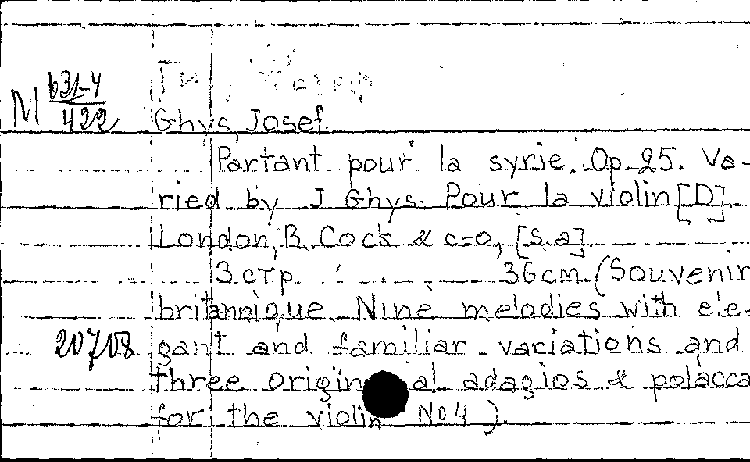 M 631-4
422
Ghys, Josef
Partant pour la syrie. Op. 25. Va-
ried by J Ghys. Pour la violin [D]
London, R. Cock & c=o, [S.a]
3 стр. 36 cm. (Souvenir
britannique. Nine melodies with ele-
20708 gant and familiar variations and
three original adagios & polacca
for the violin No 4).